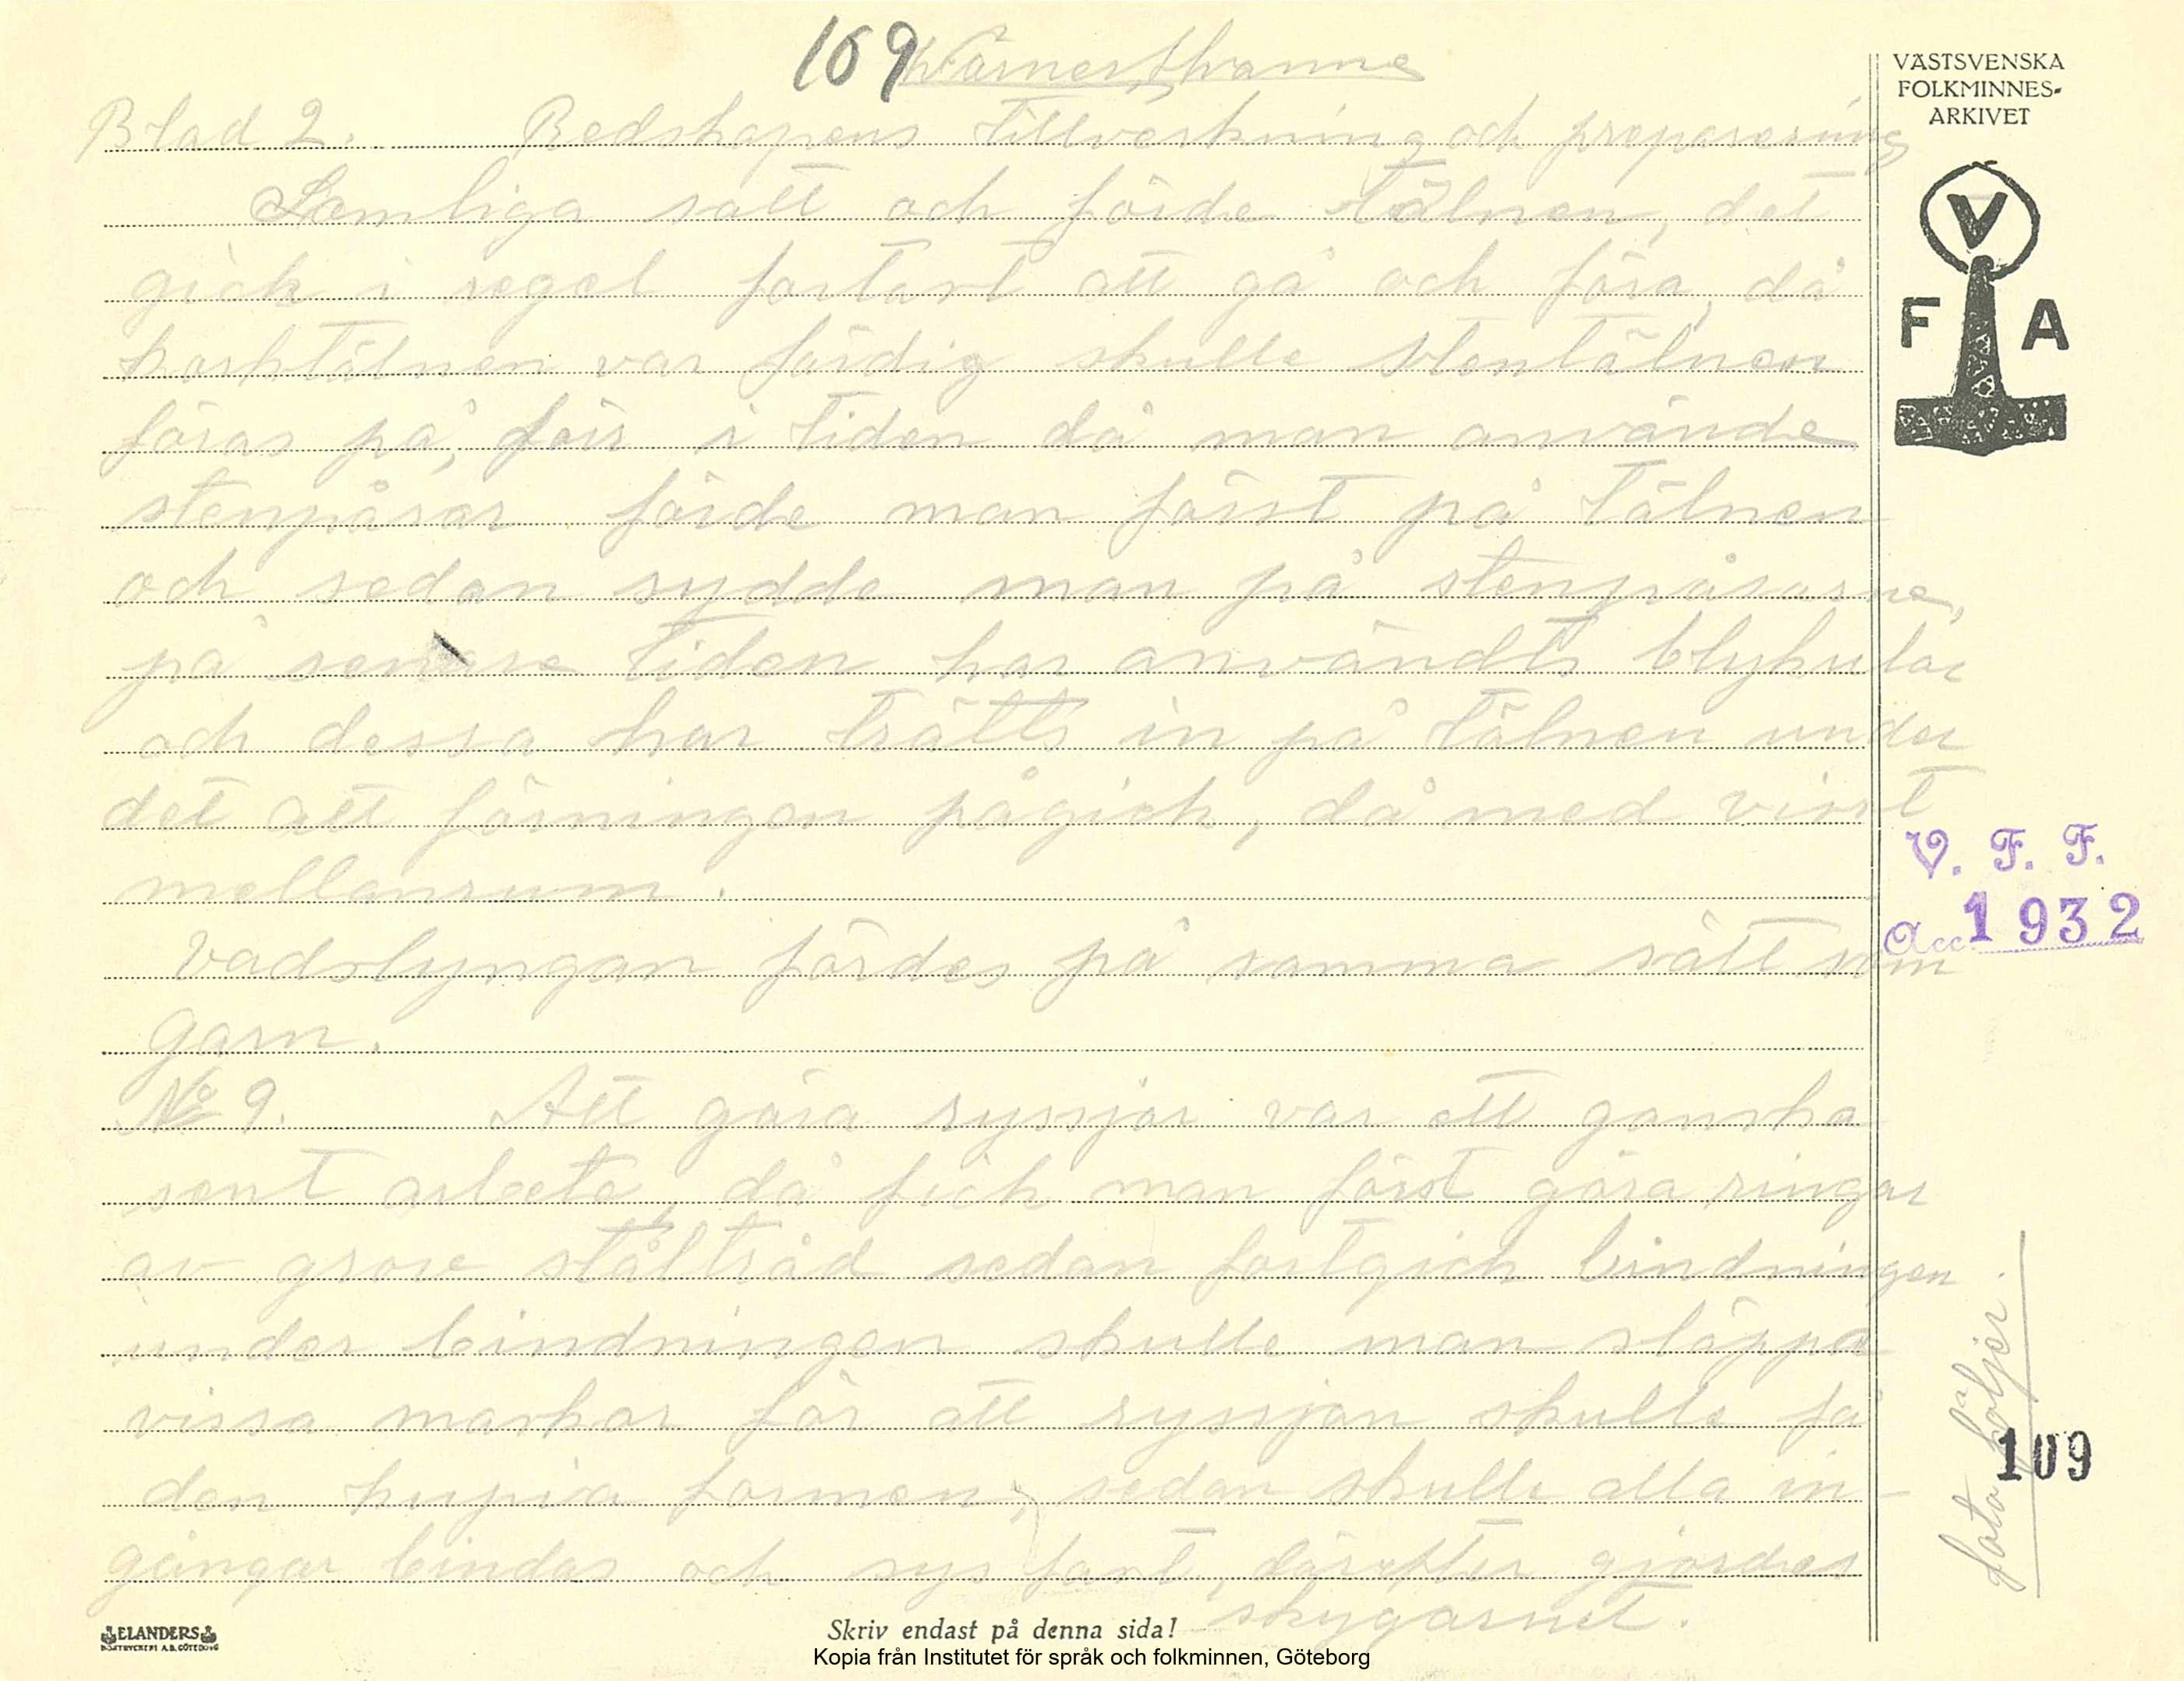 109
VÄSTSVENSKA
FOLKMINNES-
ARKIVET
Blad 2. Redskapens tillverkning och preparering
Somliga satt och förde tälnen, det
gick i regel fortare att gå och föra, då
korktälnen var färdig skulle stentälnen
föras på, förr i tiden då man använde
stenpåsar förde man först på tälnen
och sedan sydde man på stenpåsarne,
på senare tiden har användts blykulor
och dessa har trätts in på tälnen under
det att förningen pågick, då med visst
mellanrum.
Vadslyngan fördes på samma sätt som
garn.
No 9. Att göra ryssjor var ett ganska
sent arbete, då fick man först göra ringar
av grov ståltråd sedan fortgick bindningen
under bindningen skulle man släppa
vissa maskor för att ryssjan skulle få
den formen, sedan skulle alla in-
gångar bindas och sys fast, därefter gjordes
skygarnet.
V
F A
V. F. F.
Acc 1932
foto följer.
109
ELANDERS
BOKTRYCKERI A.B. GÖTEBORG
Skriv endast på denna sida!
Kopia från Institutet för språk och folkminnen, Göteborg